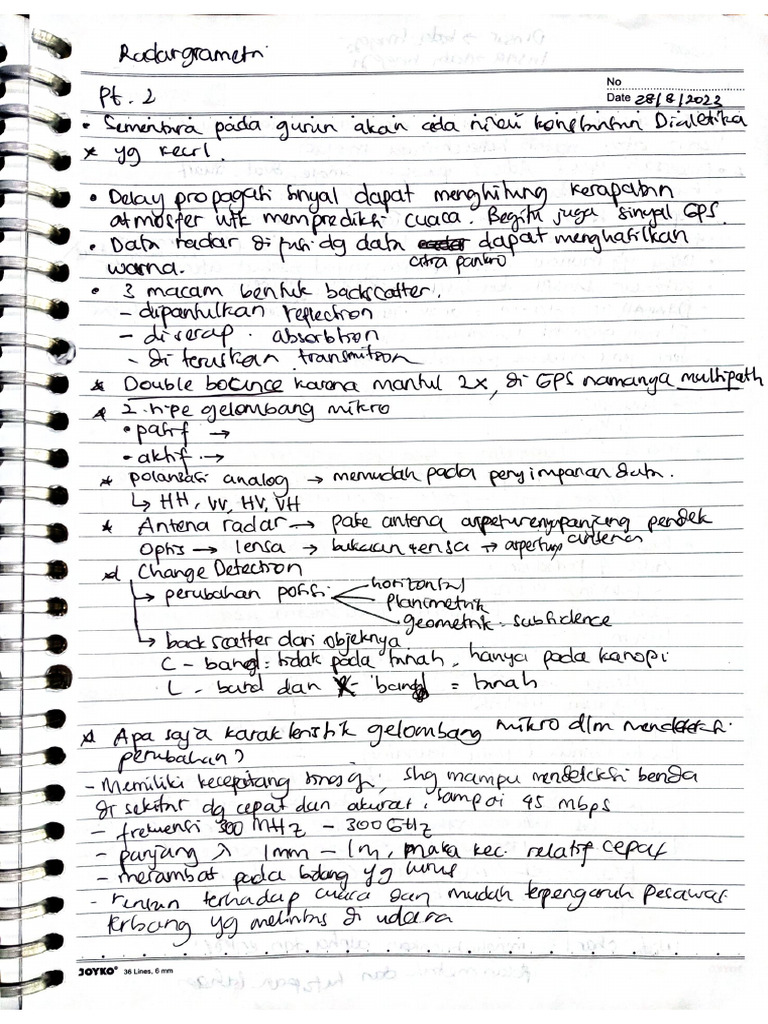 Radargrametri
No
Pt. 2
Date 28/8/2023
• Sementara pada gurun akan ada nilai konstantan Dialetika
* yg kecil.
• Delay propagasi sinyal dapat menghitung kerapatan
atmosfer utk memprediksi cuaca. Begitu juga sinyal GPS.
• Data radar di fusi dg data citra pankro dapat menghasilkan
warna.
• 3 macam bentuk backscatter.
- dipantulkan reflection
- diserap . absorbtion
- di teruskan transmition
* Double bounce karena mantul 2x, di GPS namanya multipath
* 2 tipe gelombang mikro
• pasif →
• aktif →
* polarisasi analog → memudah pada penyimpanan data.
↳ HH, VV, HV, VH
* Antena radar → pake antena aspeturenya panjang pendek antena
Optis → lensa → bukaan lensa →
* Change Detection
→ perubahan posisi horizontal
planimetrik
geometrik : subsidence
→ backscatter dari objeknya
C - band : tidak pada tanah, hanya pada kanopi
L - band dan X - band = tanah
* Apa saja karakteristik gelombang mikro dlm
perubahan?
- Memiliki kecepatang tinggi, shg mampu mendeteksi benda
di sekitar dg cepat dan akurat, sampai 45 mbps
- frekuensi 300 MHz - 300GHz
- panjang λ 1mm - 1m, maka kec. relatif cepat
- merambat pada bidang yg lurus
- rentan terhadap cuaca dan mudah terpengaruh pesawat
terbang yg melintas di udara
JOYKO® 36 Lines, 6 mm